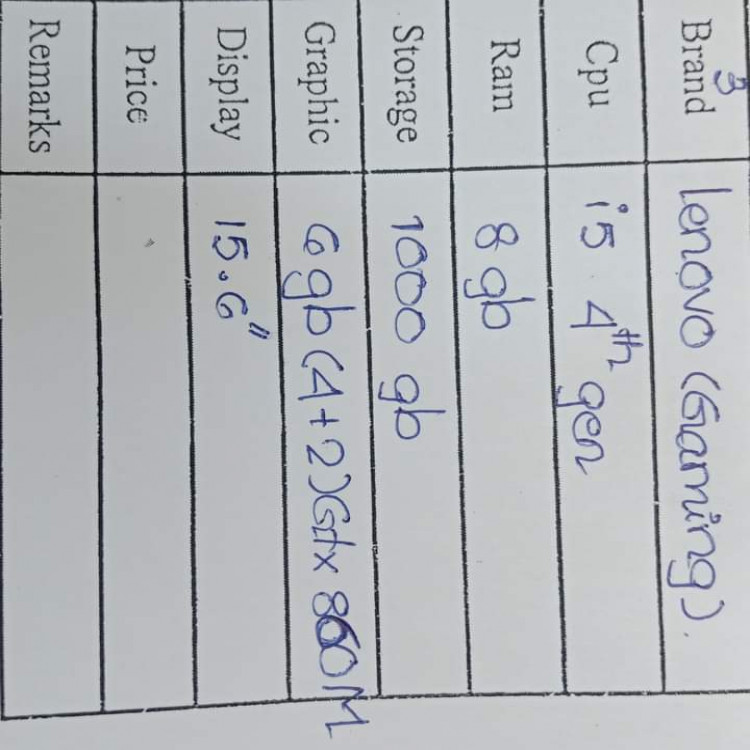 3
Brand lenovo (Gaming).
Cpu i5 4th gen
Ram 8 gb
Storage 1000 gb
Graphic 6 gb (4+2) Gtx 860M
Display 15.6"
Price
Remarks